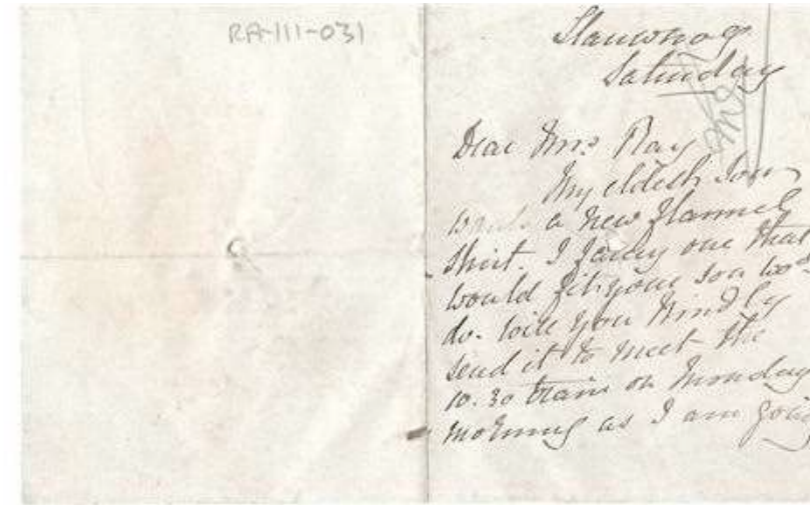 RA-111-031
Saturday
Dear Mrs. Ray
My eldest son
wants a new flannel
shirt. I fancy one that
would fit your son wod
do. Will you kindly
send it to meet the
10.30 train on Monday
morning as I am going